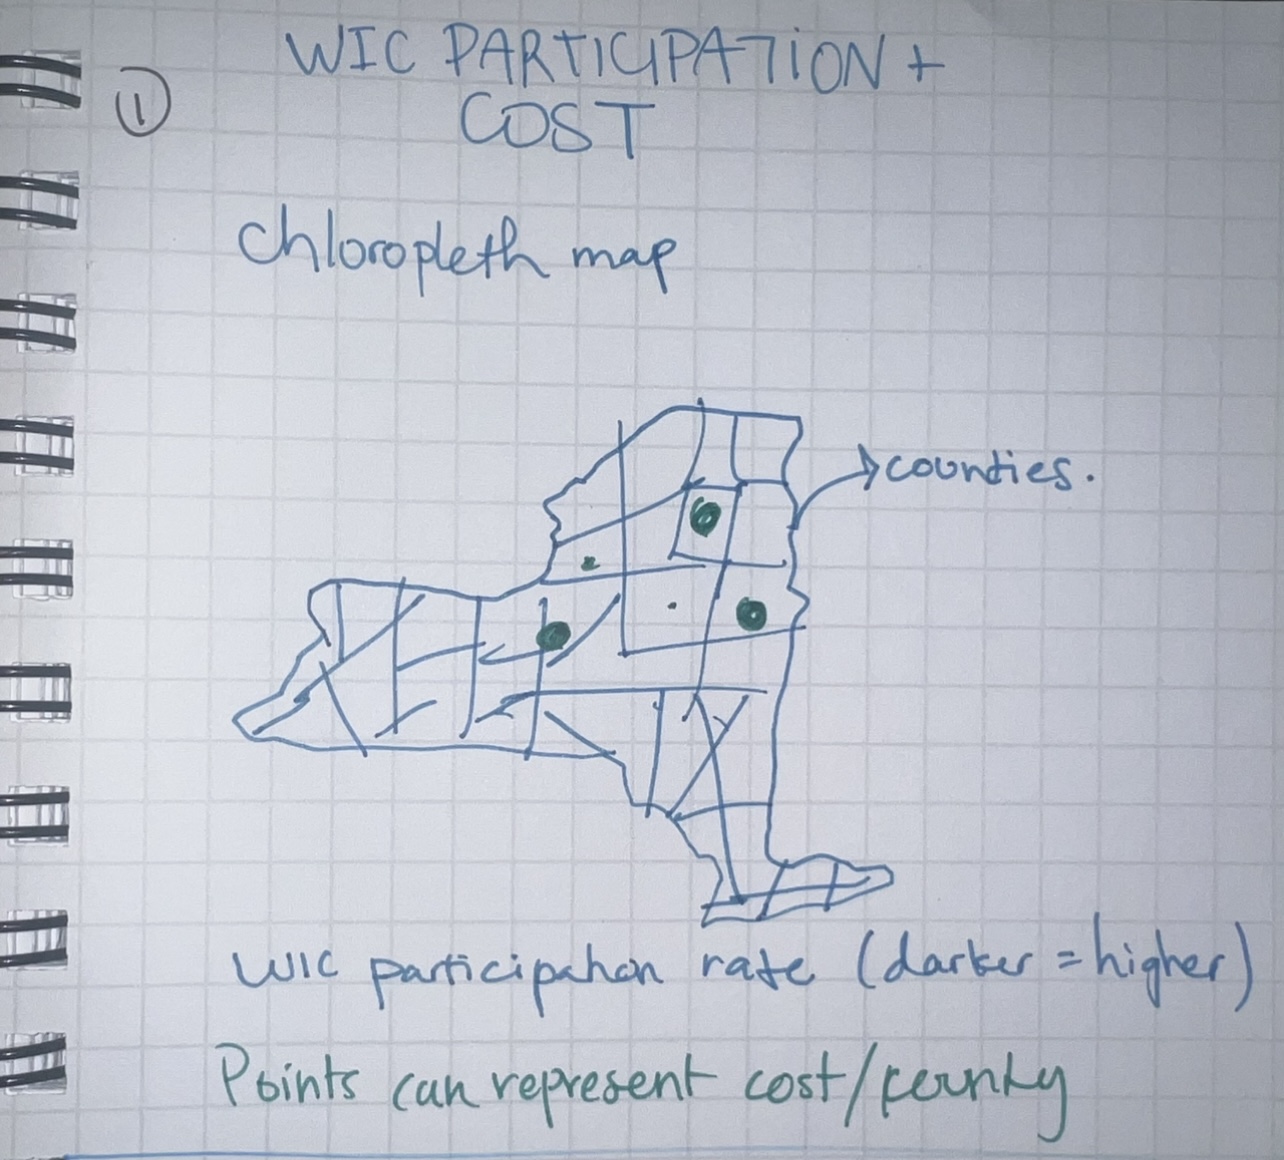 WIC PARTICIPATION +
①
COST
Chloropleth map
counties.
WIC participation rate (darker = higher)
Points can represent cost/county